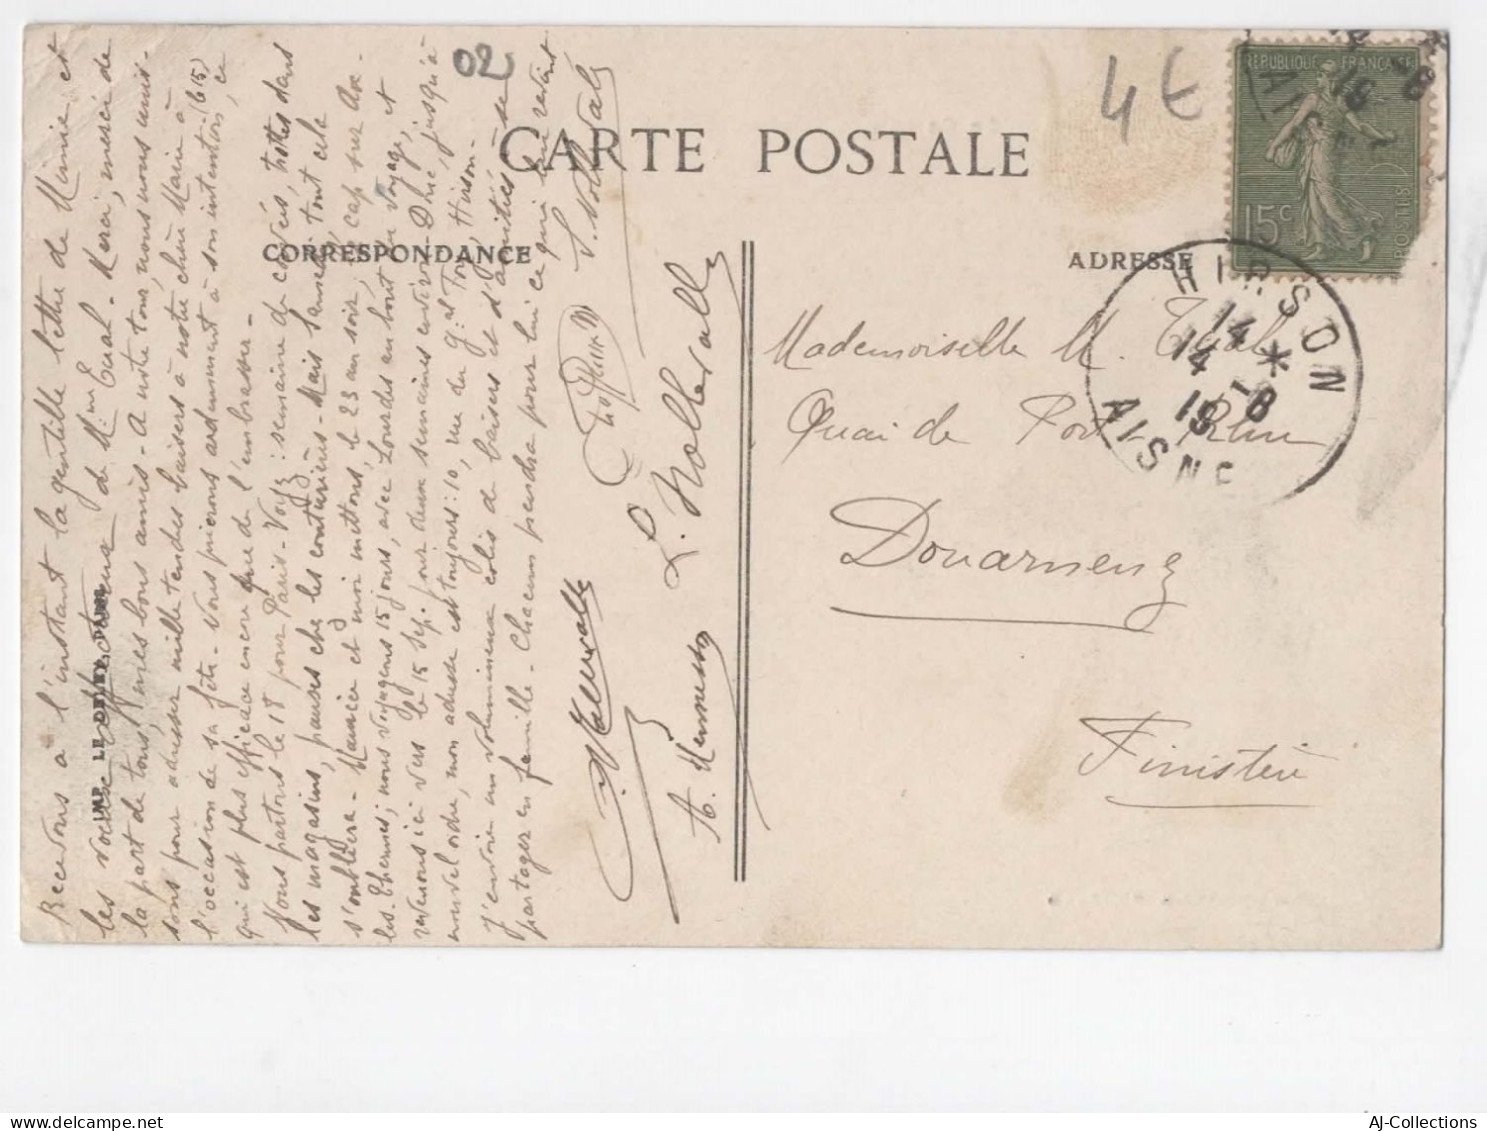 02
4 €
CARTE POSTALE
CORRESPONDANCE
ADRESSE
REPUBLIQUE FRANÇAISE
15c
POSTES
HIRSON
14
14 - 8
19
AISNE
Mademoiselle M. Tual
Quai de Port-Rhu
Douarnenez
Finistère
Recevons à l'instant la gentille lettre de Mimie et
les vœux affectueux de Mme Tual - Merci, merci de
la part de tous, mes bons amis - A notre tour, nous nous unis-
sons pour adresser mille tendres baisers à notre chère Marie à
l'occasion de sa fête - Nous prierons ardemment à son intention, ce (le 15)
qui est plus efficace encore que de l'embrasser -
Nous partons le 18 pour Paris - Voyez : semaine de corvées, trottes dans
les magasins, pauses chez les couturiers - Mais Sansen, tout cela
s'oubliera - Maurice et moi mettons, le 23 au soir, cap sur Ax-
les-Thermes; nous voyageons 15 jours, avec Lourdes en bout de voyage, et
revenons ici vers le 15 sep. pour deux semaines environ - Donc, jusqu'à
nouvel ordre, mon adresse est toujours: 10, rue du Gal Foy, Hirson -
J'envoie un volumineux colis de baisers et d'amitiés à se
partager en famille - Chacun prendra pour lui ce qui lui revient
L. Nolleval
IMP. LE DELEY, PARIS
AJ-Collections